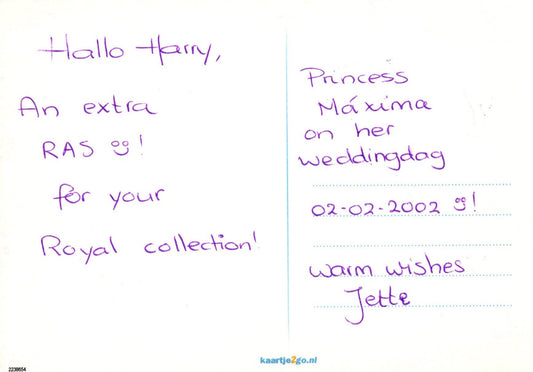 Hallo Harry,
An extra
RAS ☺!
for your
Royal collection!
Princess
Máxima
on her
weddingdag
02-02-2002 ☺!
warm wishes
Jette
kaartje2go.nl
2238654